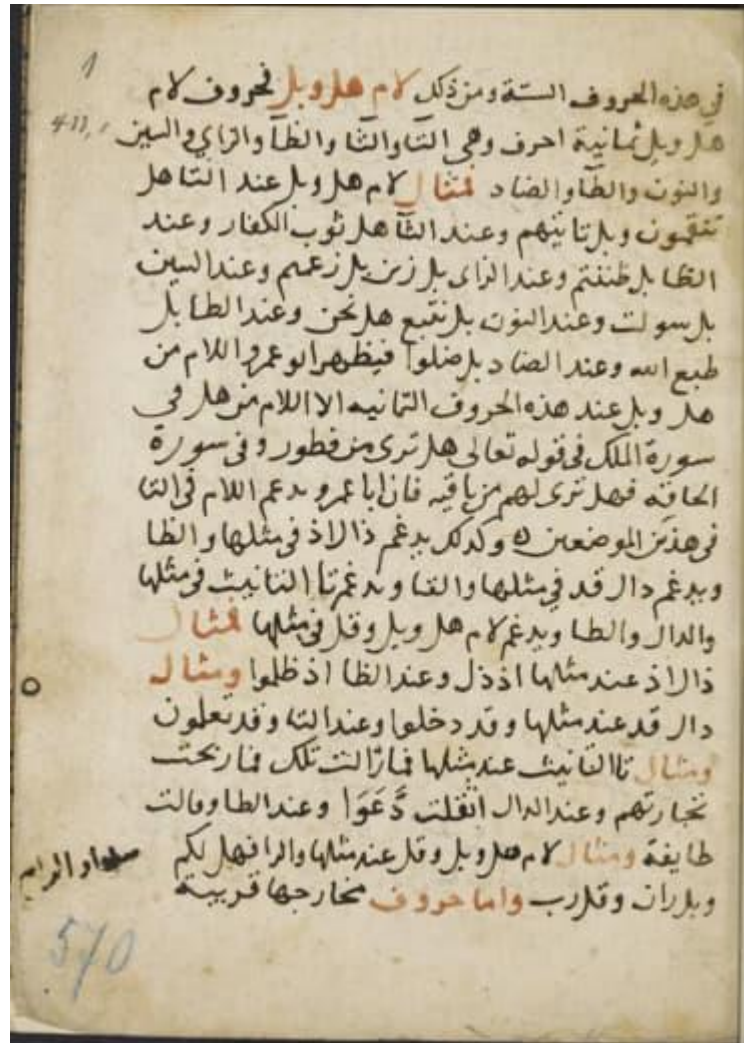 1
433,
في هذه الحروف الستة ومن ذلك لام هل وبل فحروف لام
هل وبل ثمانية احرف وهي التا والثا والظا والزاي والسين
والنون والطا والضاد فمثال لام هل وبل عند التا هل
تنقمون وبل تاتيهم وعند الثا هل ثوب الكفار وعند
الظا بل ظننتم وعند الزاى بل زين بل زعمتم وعند السين
بل سولت وعند النون بل نتبع هل نحن وعند الطا بل
طبع الله وعند الضاد بل ضلوا فيظهر ابو عمرو اللام من
هل وبل عند هذه الحروف الثمانيه الا اللام من هل في
سورة الملك في قوله تعالى هل ترى من فطور وفى سورة
الحاقه فهل ترى لهم من باقيه فان ابا عمرو يدغم اللام فى التا
فى هذين الموضعين وكذلك يدغم ذال اذ فى مثلها والظا
ويدغم دال قد فى مثلها والتا ويدغم تا التانيث فى مثلها
والدال والطا ويدغم لام هل وبل وقل فى مثلها فمثال
ذال اذ عند مثلها اذ ذل وعند الظا اذ ظلموا ومثال
دال قد عند مثلها وقد دخلوا وعند التا وقد تعلمون
ومثال تا التانيث عند مثلها فما زالت تلك فما ربحت
تجارتهم وعند الدال اثقلت دَّعَوَا وعند الطا وقالت
طايفة ومثال لام هل وبل وقل عند مثلها والرا فهل لكم
وبل ران وقل رب واما حروف مخارجها قريبة
570